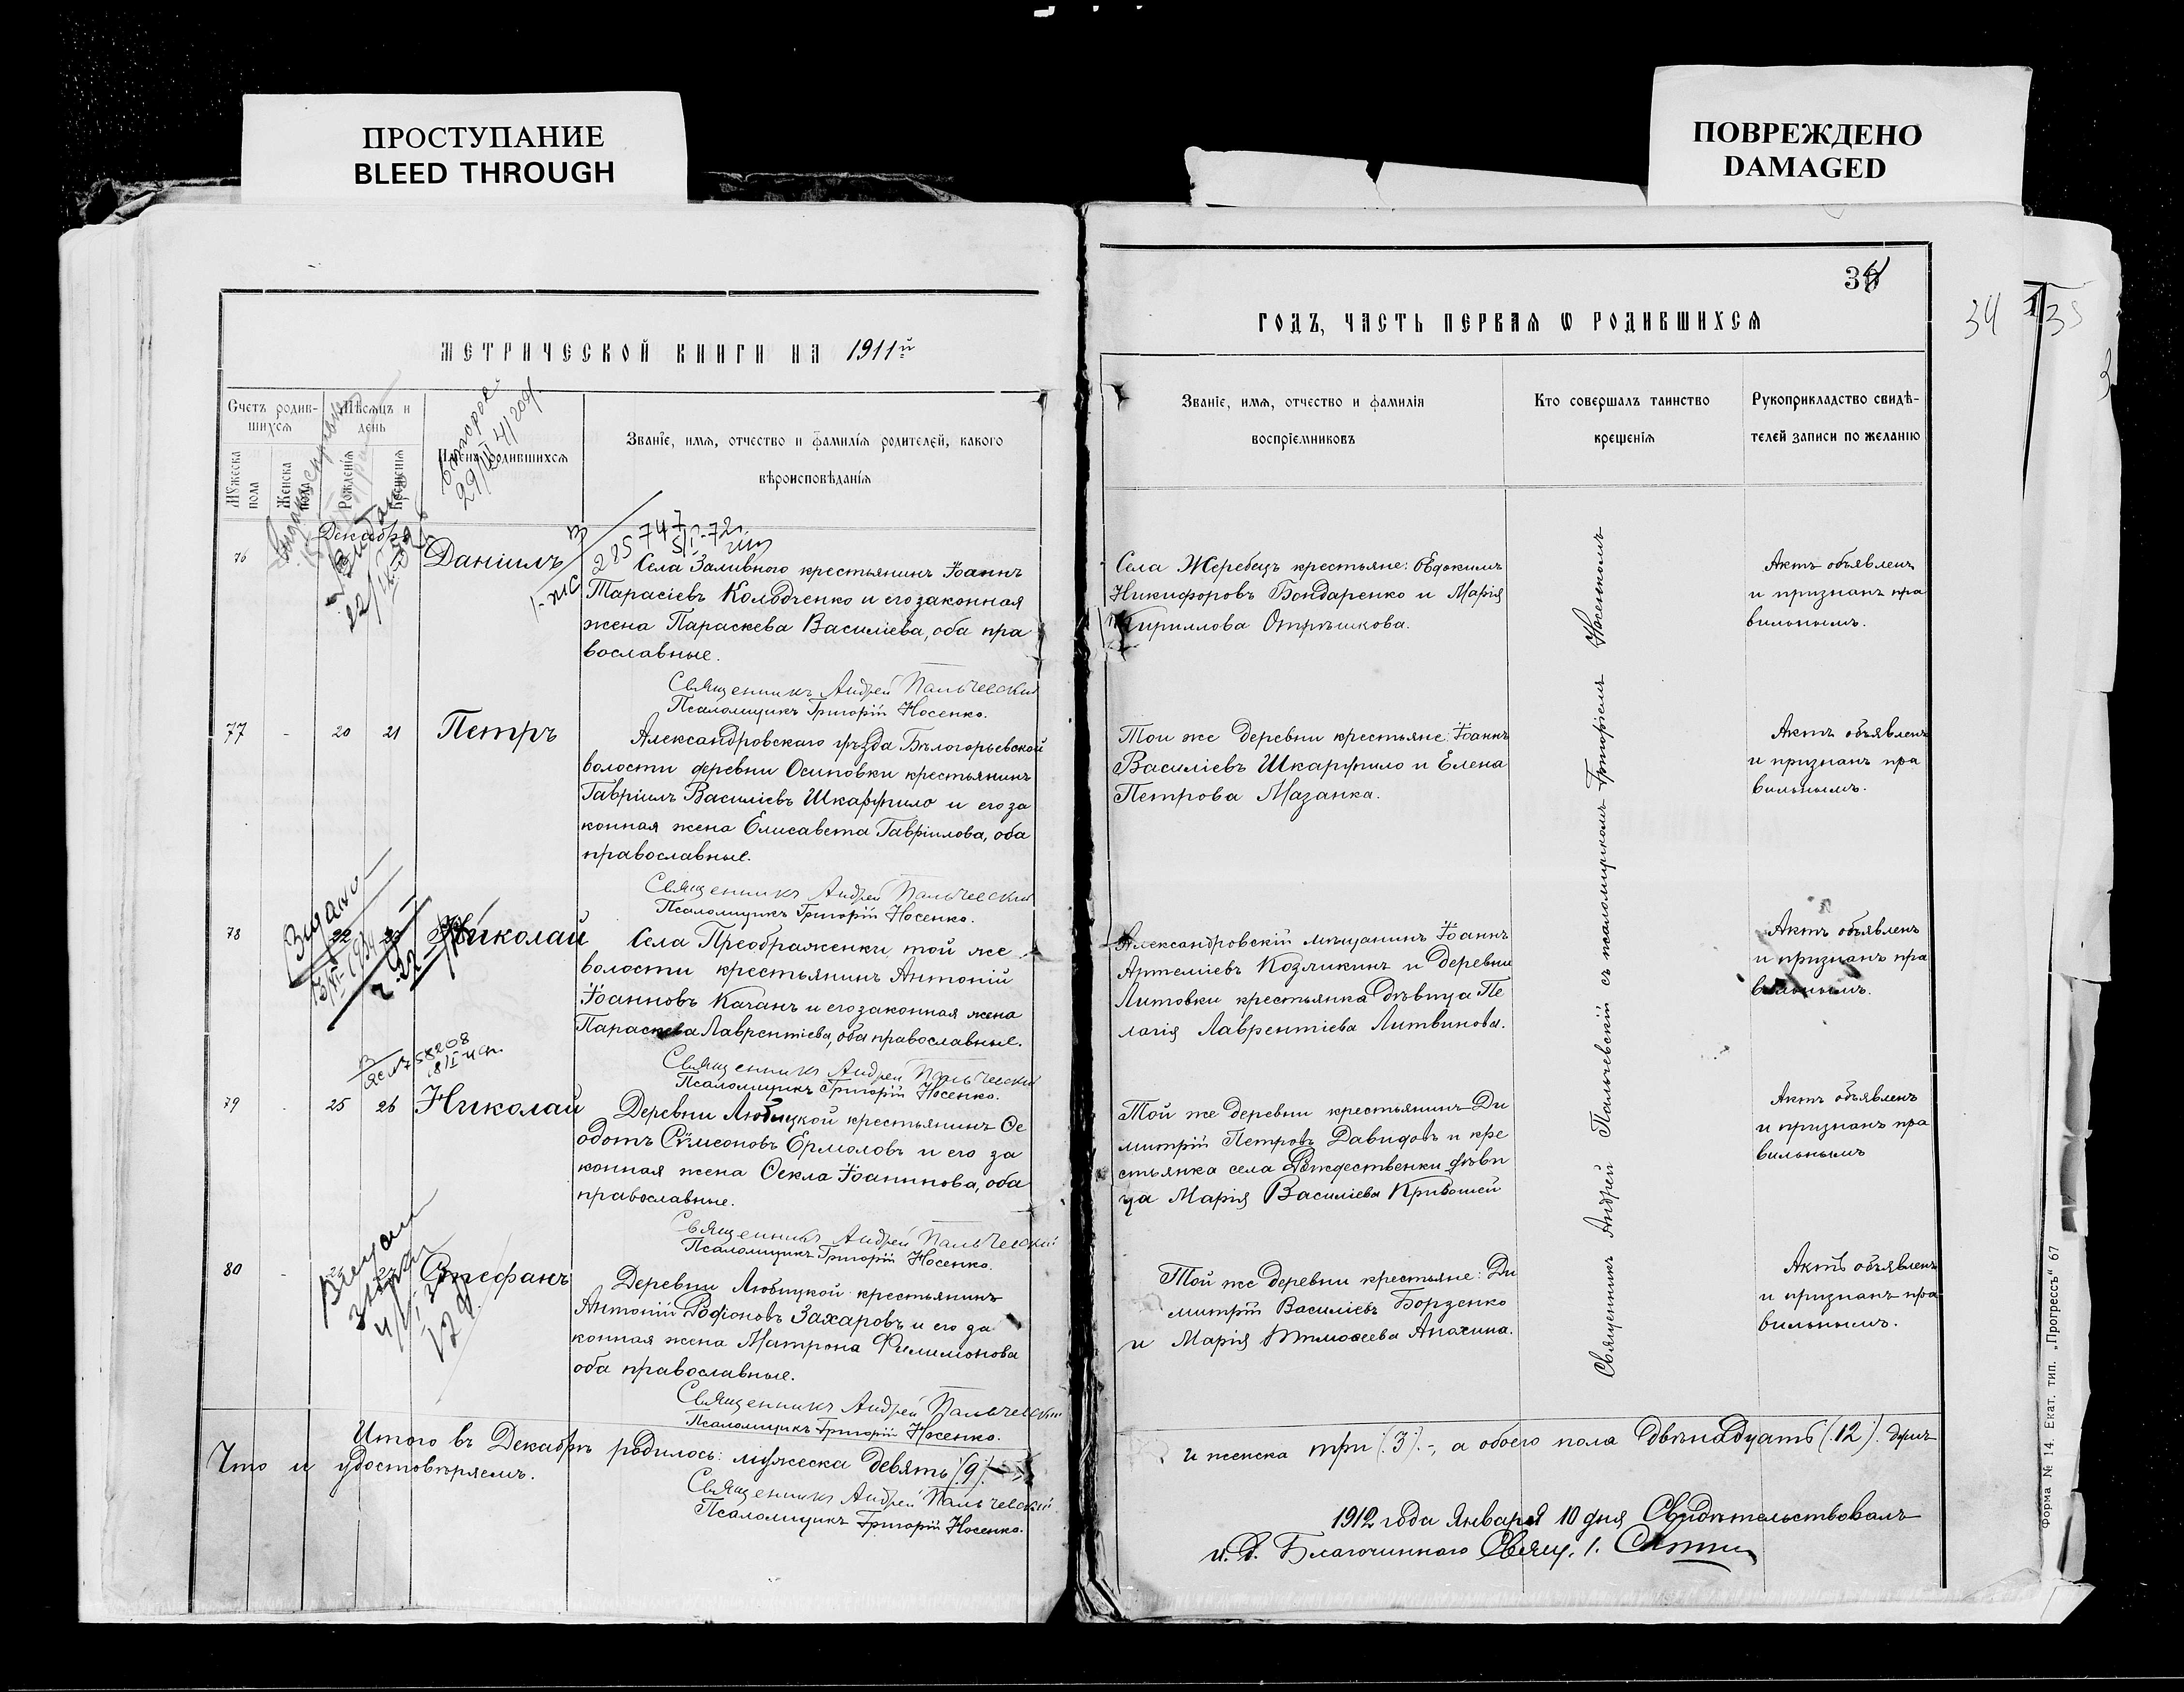 ПРОСТУПАНИЕ
BLEED THROUGH
ПОВРЕЖДЕНО
DAMAGED
МЕТРИЧЕСКОЙ КНИГИ НА 1911й
Счетъ родив-
шихся
Мѣсяцъ и
день
Мужеска
пола
Женска
пола
Рожденія
Крещенія
Имена родившихся
Званіе, имя, отчество и фамилія родителей, какого
вѣроисповѣданія
второе
Декабрь
76
Даніилъ
Села Заливного крестьянинъ Іоаннъ
Тарасіевъ Колодченко и его законная
жена Параскева Василіева, оба пра
вославные.
Священникъ Андрей Пальчевскій
Псаломщикъ Григорій Носенко.
77 - 20 21 Петръ
Александровскаго уѣзда Бѣлогорьевской
волости деревни Осиповки крестьянинъ
Гавріилъ Василіевъ Шкаруппило и его за
конная жена Елисавета Гавріилова, оба
православные.
Священникъ Андрей Пальчевскій
Псаломщикъ Григорій Носенко.
78 22 Николай
Села Преображенки той же
волости крестьянинъ Антоній
Іоанновъ Качанъ и его законная жена
Параскева Лаврентіева, оба православные.
Священникъ Андрей Пальчевскій
Псаломщикъ Григорій Носенко.
79 - 25 26 Николай
Деревни Любицкой крестьянинъ Ѳе
одотъ Сѵмеоновъ Ермоловъ и его за
конная жена Ѳекла Іоаннова, оба
православные.
Священникъ Андрей Пальчевскій
Псаломщикъ Григорій Носенко.
80 - Стефанъ
Деревни Любицкой крестьянинъ
Антоній Родіоновъ Захаровъ и его за
конная жена Матрона Филимонова
оба православные.
Священникъ Андрей Пальчевскій
Псаломщикъ Григорій Носенко.
Итого въ Декабрѣ родилось: мужеска девять (9)
Что и удостовѣряемъ.
Священникъ Андрей Пальчевскій
Псаломщикъ Григорій Носенко.
34
34
35
ГОДЪ, ЧАСТЬ ПЕРВАЯ Ѡ РОДИВШИХСЯ
Званіе, имя, отчество и фамилія
воспріемниковъ
Кто совершалъ таинство
крещенія
Рукоприкладство свидѣ-
телей записи по желанію
Села Жеребецъ крестьяне: Евдокимъ
Никифоровъ Бондаренко и Марія
Кириллова Отрѣшкова.
Актъ объявленъ
и признанъ пра
вильнымъ.
Той же деревни крестьяне: Іоаннъ
Василіевъ Шкаруппило и Елена
Петрова Мазанка.
Актъ объявленъ
и признанъ пра
вильнымъ.
Александровскій мѣщанинъ Іоаннъ
Артеміевъ Козликинъ и деревни
Литовки крестьянка дѣвица Пе
лагія Лаврентіева Литвинова.
Актъ объявленъ
и признанъ пра
вильнымъ.
Той же деревни крестьянинъ Ди
митрій Петровъ Давидовъ и кре
стьянка села Рождественки дѣви
ца Марія Василіева Кривошей
Актъ объявленъ
и признанъ пра
вильнымъ
Той же деревни крестьяне: Ди
митрій Василіевъ Борзенко
и Марія Тимоѳеева Апахина.
Актъ объявленъ
и признанъ пра
вильнымъ.
Священникъ Андрей Пальчевскій съ псаломщикомъ Григоріемъ Носенкомъ
и женска три (3)., а обоего пола двѣнадцать (12). душъ
1912 года Января 10 дня Свидѣтельствовалъ
и. д. Благочиннаго Свящ. І.
Форма № 14. Екат. тип. „Прогрессъ“ 67